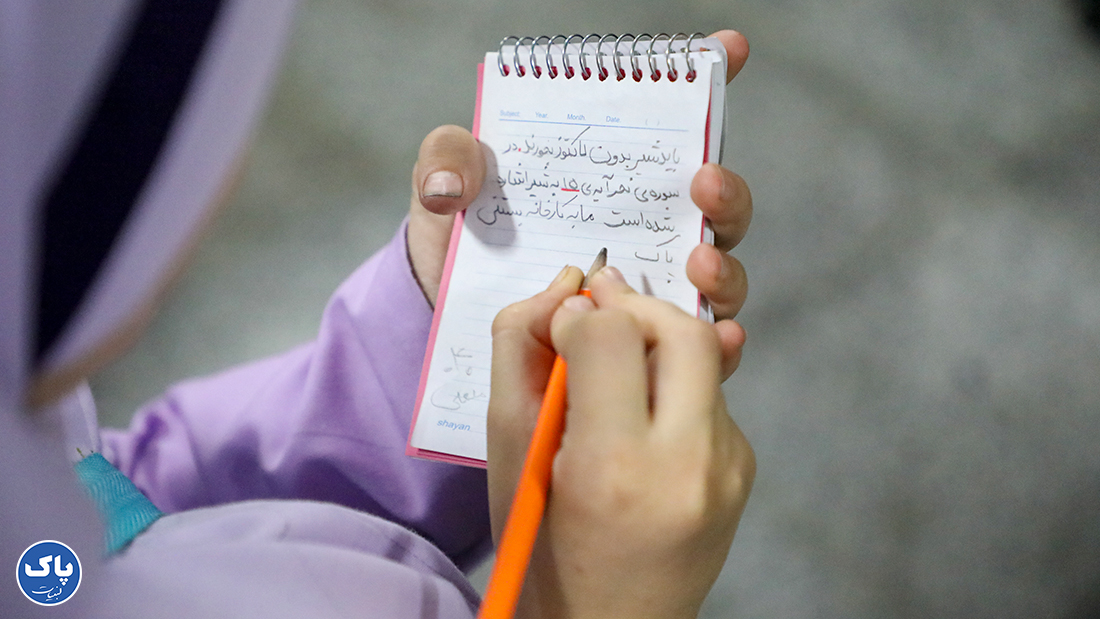 Subject: Year: Month: Date: ( / )
باید شیر بدون لاکتوز بخورند. در
سوره‌ی نحر آیه‌ی ۱۵ به شیر اشاره
شده است ما به کارخانه بستنی
پاک
shayan
پاک
لبنیات